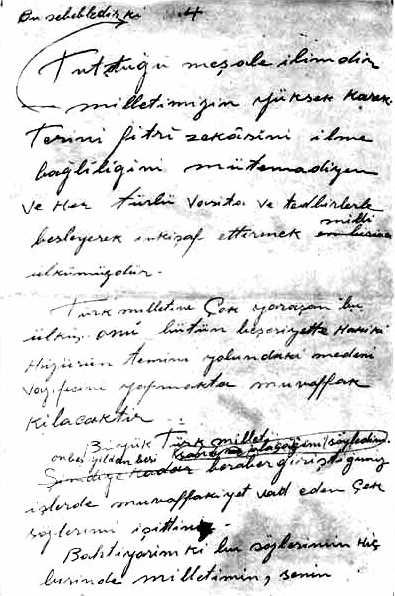 Bu sebebledir, ki 4
Tuttuğu meşale ilimdir
milletimizin yüksek karak-
terini fitrî zekâsini ilme
bağliliğini mütemadiyen
ve her türlü vasita ve tedbirlerle
milli
besliyerek inkişaf ettirmek
ülkümüzdür.
Türk milletine çok yaraşan bu
ülkü, onu bütün beşeriyette hakiki
huzurun temini yolundaki medeni
vazifesini yapmakta muvaffak
kilacaktir
Büyük Türk milleti,
onbeş yildan beri
Şimdiye kadar beraber giriştiğimiz
işlerde muvaffakiyet vad eden çok
sözlerimi işittin.
Bahtiyarim ki bu sözlerimin hiç
birinde milletimin, senin